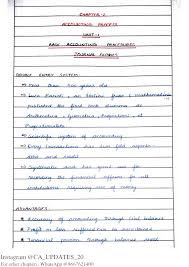 CHAPTER-2
ACCOUNTING PROCESS
UNIT-1
BASIC ACCOUNTING PROCEDURES
JOURNAL ENTRIES
DOUBLE ENTRY SYSTEM
→ More than 500 years old
→ Luca Pacioli, an Italian
published the first book
Arithmetica, Geometria, Proportioni, et
Proportionalita
→ Scientific system of accounting
→ Every transaction has two fold aspects -
debit and credit
→ Systematic and has great use for
recording the financial affairs of all
institutions
ADVANTAGES
Accuracy of accounting through trial balance
Profit or loss can be ascertained
Financial position through balance sheet
Instagram @CA_UPDATES_20
For other chapters, WhatsApp @8667621400